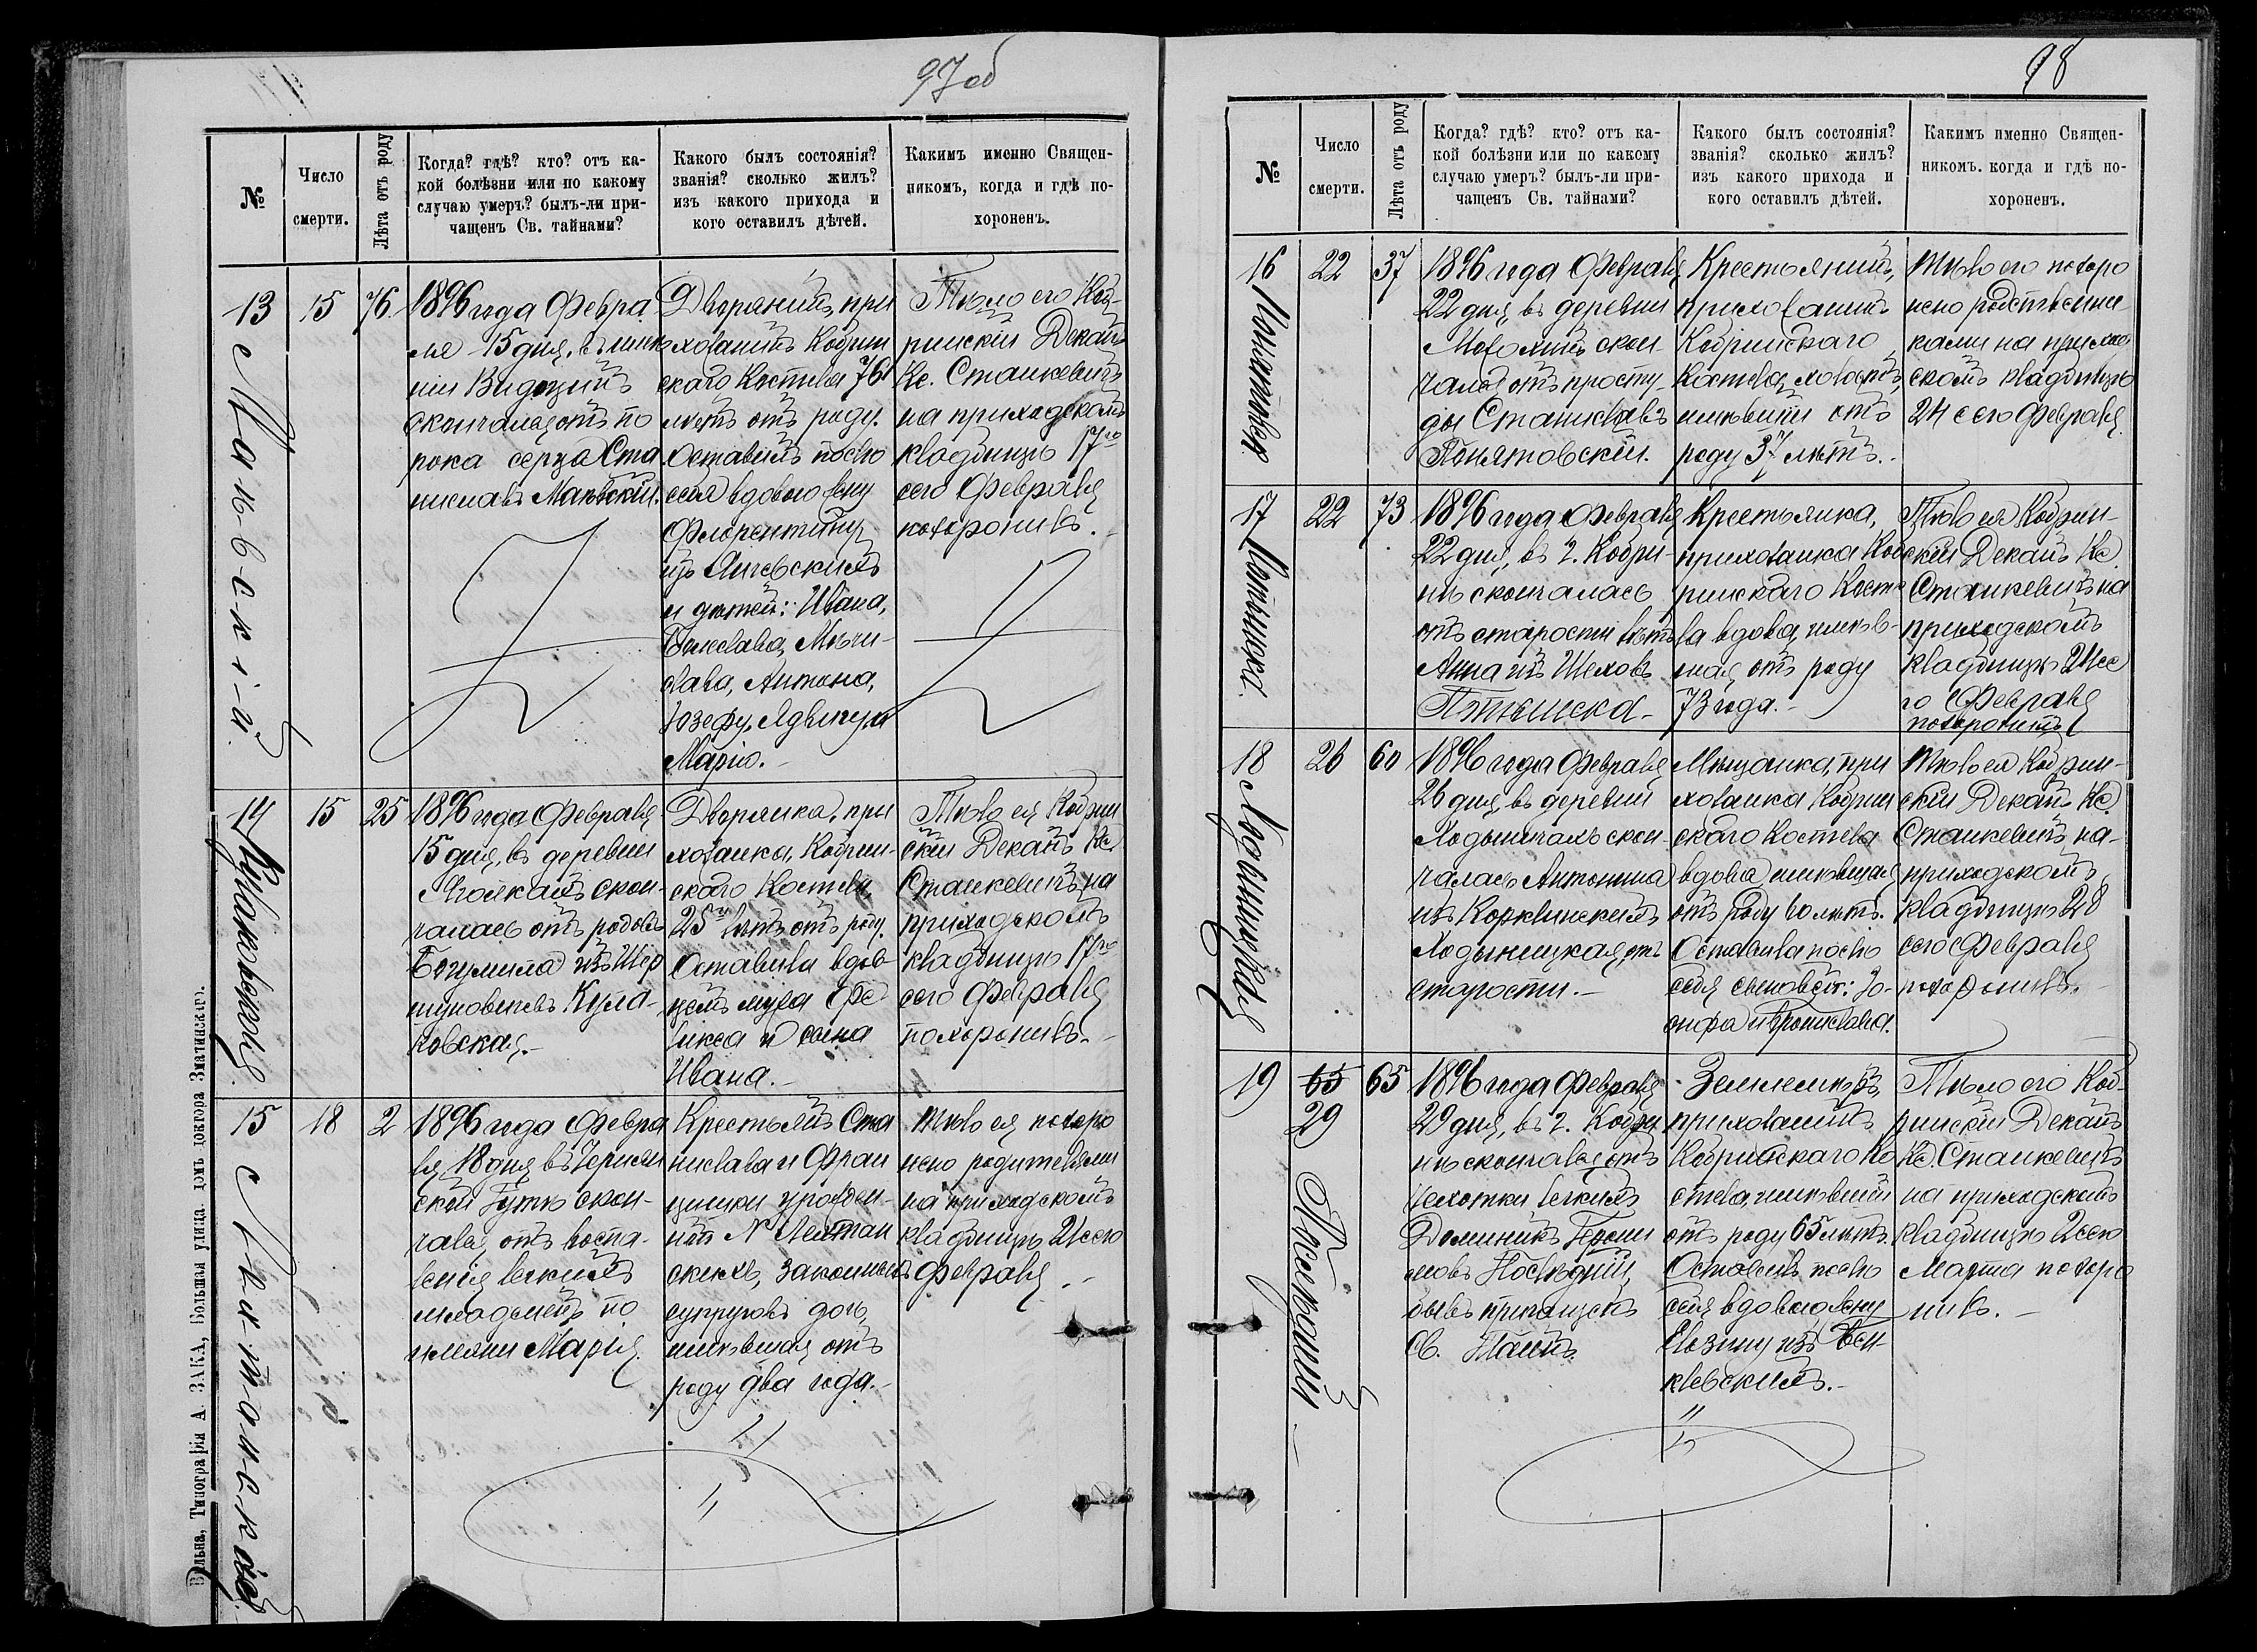 97об
№
Число
смерти.
Лѣта отъ роду
Когда? гдѣ? кто? отъ ка-
кой болѣзни или по какому
случаю умеръ? былъ-ли при-
чащенъ Св. тайнами?
Какого былъ состоянія?
званія? сколько жилъ?
изъ какого прихода и
кого оставилъ дѣтей.
Какимъ именно Священ-
никомъ, когда и гдѣ по-
хороненъ.
13
15
76
1896 года Февра
ля 15 дня, въ имѣ
ніи
скончался отъ по
рока серца Ста
ниславъ Маковскій.
Дворянинъ, при
хожанинъ Кобрин
скаго Костела 76
лѣтъ отъ роду.
Оставилъ послѣ
себя вдовою жену
Флорентину
изъ
и дѣтей: Ивана,
Болеслава, Мечи-
слава, Антона,
Юзефу, Ядвигу и
Марію.
Тѣло его Коб-
ринскій Деканъ
Кс. Станкевичъ
на приходскомъ
кладбищѣ 17го
сего Февраля
похоронилъ.
14
15
25
1896 года Февраля
15 дня, въ деревни
скон-
чалась отъ родовъ
Богумила изъ Шер
шуновичевъ Кула-
ковская.
Дворянка, при
хожанка, Кобрин-
скаго Костела
25ти лѣтъ отъ роду.
Оставила вдов-
цемъ мужа Фе
ликса и сына
Ивана.
Тѣло ея Кобрин
скій Деканъ Кс.
Станкевичъ на
приходскомъ
кладбищѣ 17го
сего Февраля
похоронилъ.
Кулаковская
15
18
2
1896 года Февра
ля 18 дня въ
ской Гутѣ скон-
чалась отъ воспа-
ленія легкихъ
младенецъ по
имени Марія.
Крестьянъ Ста
нислава и Фран
цишки урожден-
ной N
скихъ, законныхъ
супруговъ дочь,
имѣвшая отъ
роду два года.
Тѣло ея похоро
нено родителями
на приходскомъ
кладбищѣ 21 сего
Февраля.
Вильна, Типографія А. ЗАКА, Большая улица, домъ доктора Зматинскаго.
98
№
Число
смерти.
Лѣта отъ роду
Когда? гдѣ? кто? отъ ка-
кой болѣзни или по какому
случаю умеръ? былъ-ли при-
чащенъ Св. тайнами?
Какого былъ состоянія?
званія? сколько жилъ?
изъ какого прихода и
кого оставилъ дѣтей.
Какимъ именно Священ-
никомъ. когда и гдѣ по-
хороненъ.
16
22
37
1896 года Февраля
22 дня, въ деревни
скон-
чался отъ просту-
ды Станиславъ
Понятовскій.
Крестьянинъ,
прихожанинъ
Кобринскаго
Костела, холостъ,
имѣвшій отъ
роду 37 лѣтъ.
Тѣло его похоро
нено родственни-
ками на приход
скомъ кладбищѣ
24 сего Февраля.
17
22
73
1896 года Февраля
22 дня, въ г. Кобри-
нѣ скончалась
отъ старости лѣтъ
Анна изъ Шеховъ
Крестьянка,
прихожанка Коб
ринскаго Косте
ла вдова, имѣв-
шая отъ роду
73 года.
Тѣло ея Кобрин-
скій Деканъ Кс.
Станкевичъ на
приходскомъ
кладбищѣ 24 се
го Февраля
похоронилъ
18
26
60
1896 года Февраля
26 дня, въ деревни
Ходыничахъ скон-
чалась Антонина
изъ Корклинскихъ
Ходыницкая, отъ
старости.
Мѣщанка, при
хожанка Кобрин
скаго Костела
вдова имѣвшая
отъ роду 60 лѣтъ.
Оставила послѣ
себя сыновей: Іо-
сифа и Бронислава.
Тѣло ея Кобрин-
скій Деканъ Кс.
Станкевичъ на-
приходскомъ
кладбищѣ 28
сего Февраля
похоронилъ.
Ходыницкая
19
65
29
65
1896 года Февраля
29 дня, въ г. Кобри
нѣ скончался отъ
чахотки легкихъ
Доминикъ
бывъ причащенъ
Св. Таинъ.
Землемѣръ,
прихожанинъ
Кобринскаго Ко
стела, имѣвшій
отъ роду 65 лѣтъ.
Оставилъ послѣ
себя вдовою жену
изъ
Тѣло его Коб-
ринскій Деканъ
Кс. Станкевичъ
на приходскомъ
кладбищѣ 2 сего
Марта похоро
нилъ.